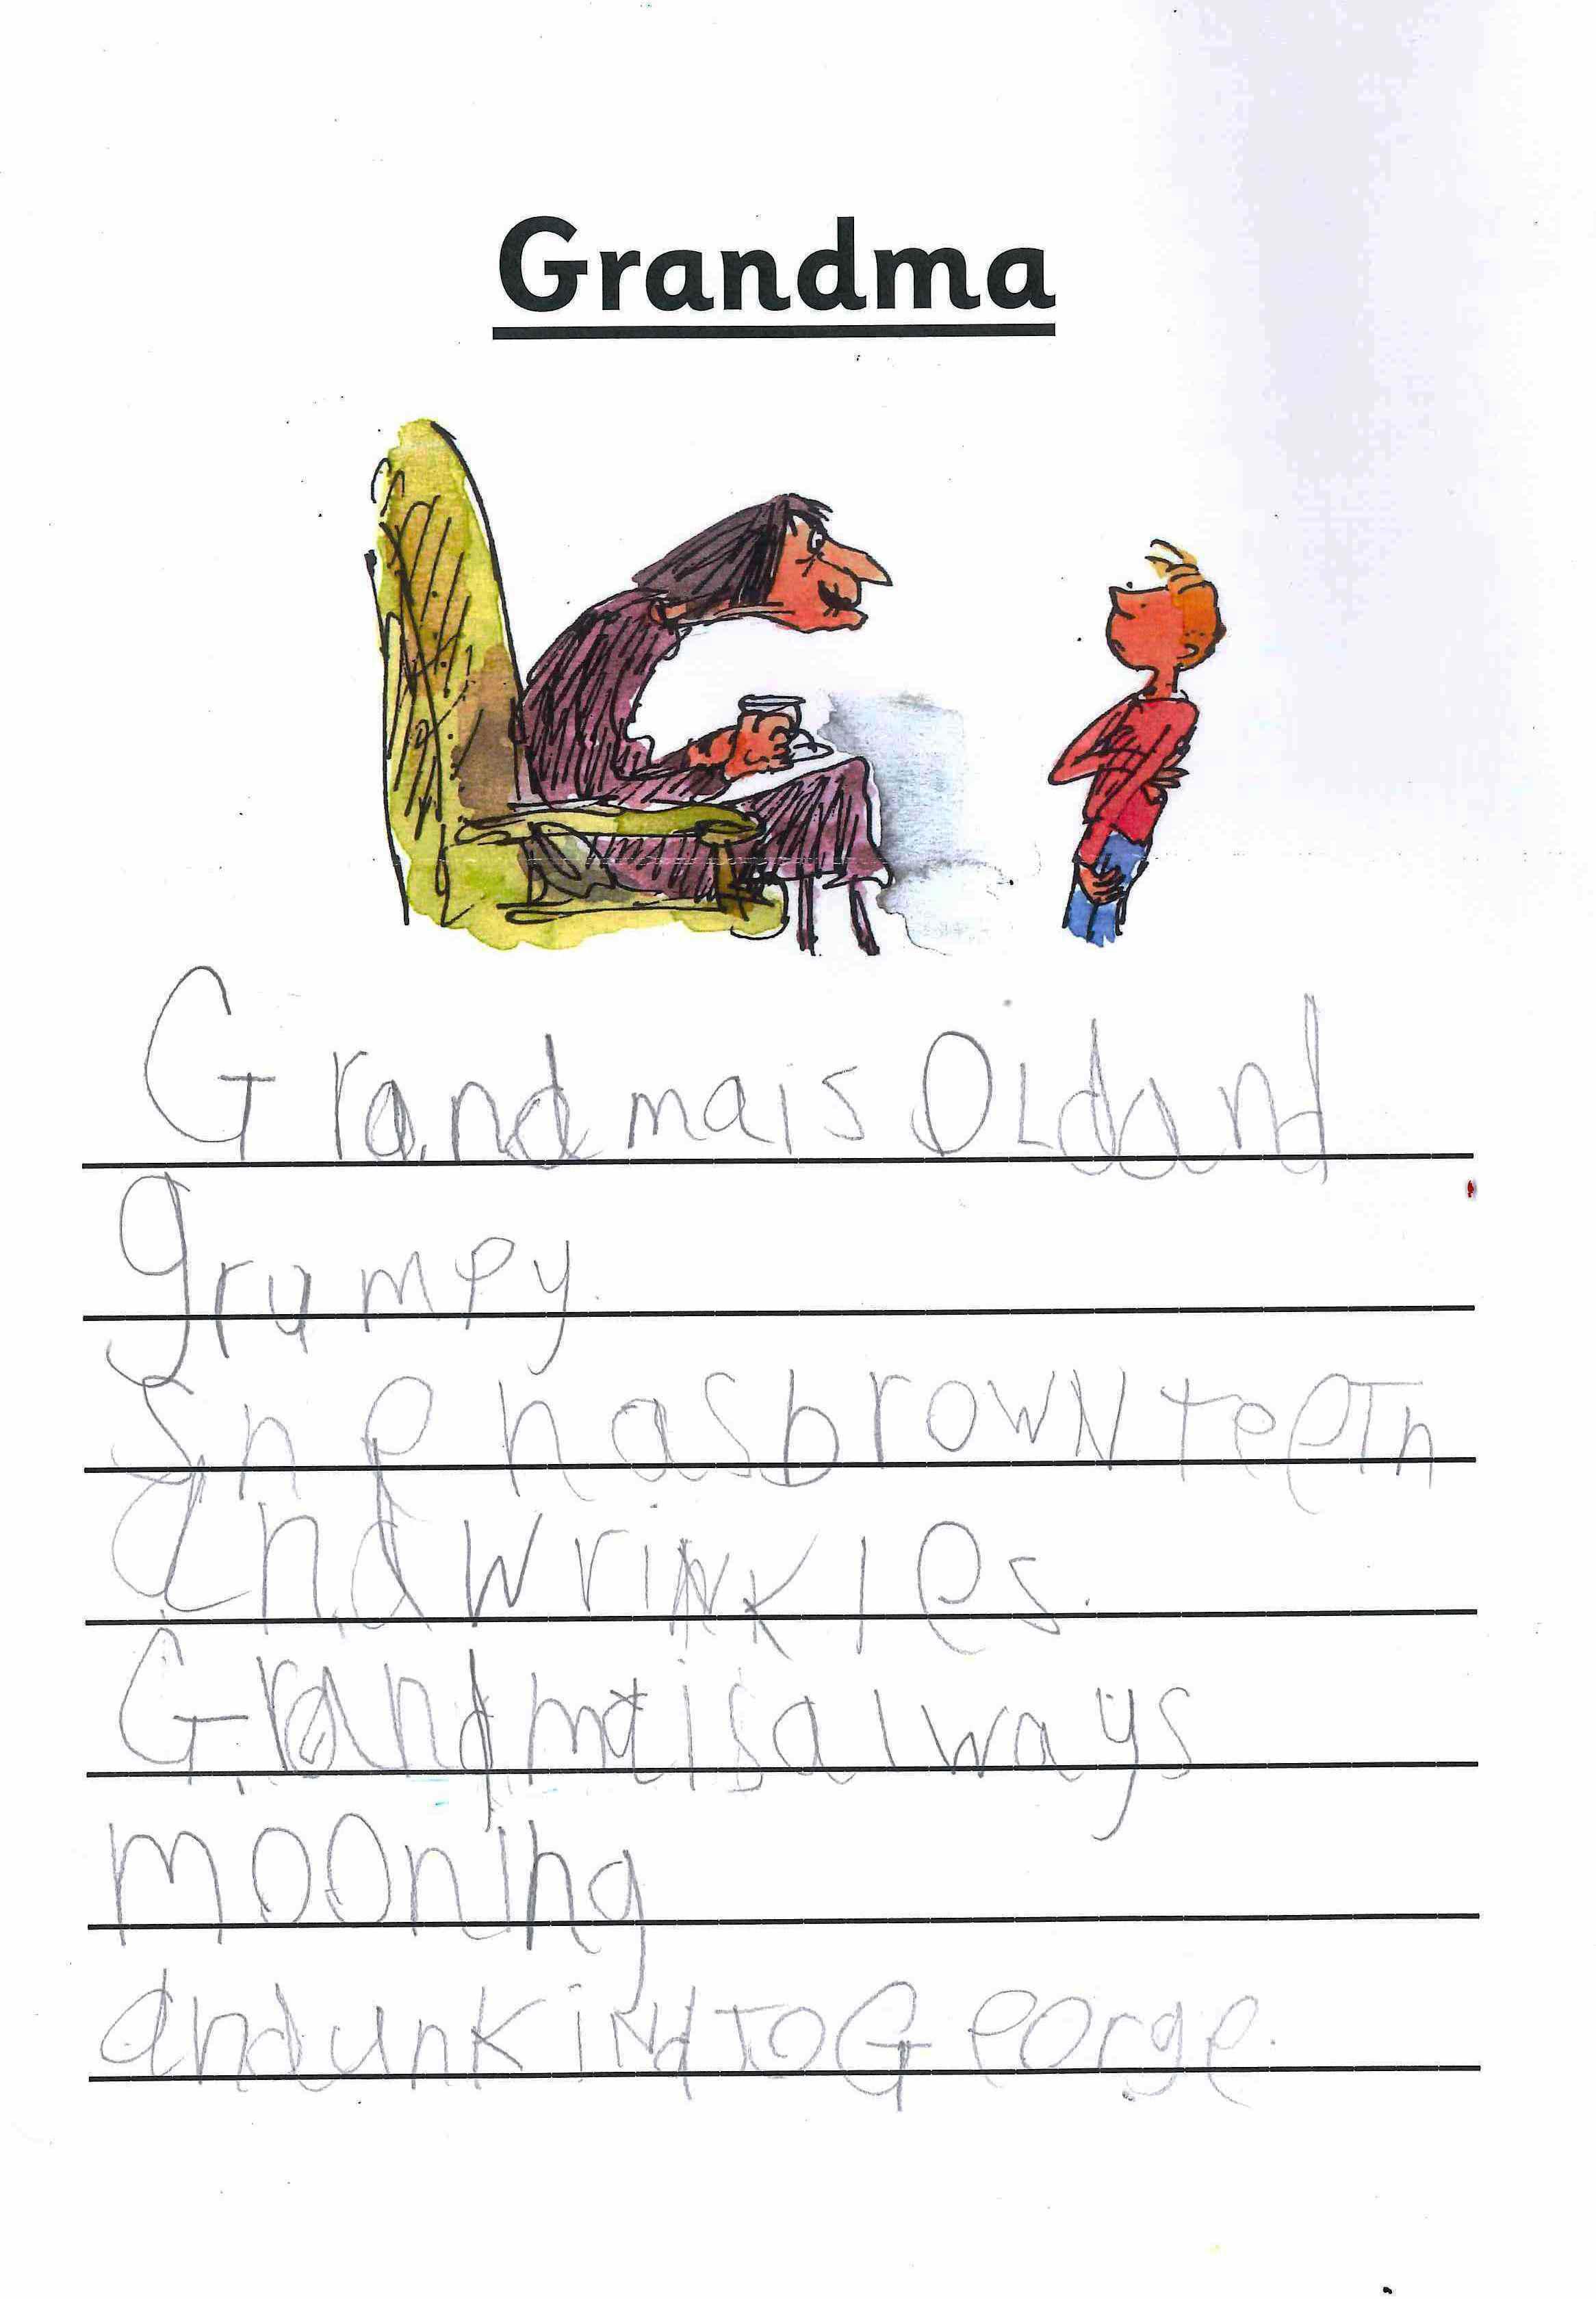 Grandma
Grandma is OLd and
grumpy.
She has browN teeTh
and wriNKles.
Grandma is always
mooning
and unKiNd TO George.